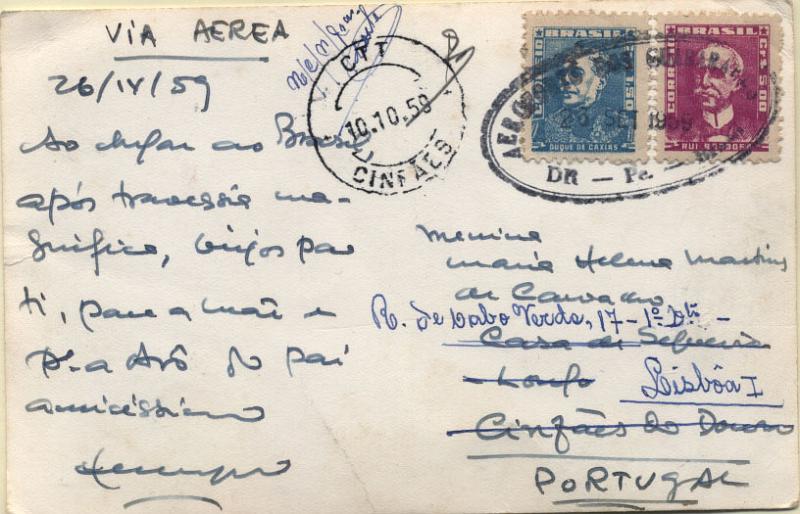 VIA AEREA
26/IX/59
Ao chegar ao Brasil
após travessia ma-
gnífica, beijos para
ti, para a mãe e
pª a Avó do pai
amicíssimo
CTT
10.10.59
CINFÃES
BRASIL
CORREIO
DUQUE DE CAXIAS
BRASIL
CORREIO
CR$ 5,00
RUI BARBOSA
AEROPORTO DOS GUARARAPES
SET 1959
DR — Pe.
Menina
Maria Helena Martins
de Carvalho
R. de Cabo Verde, 17-1º Dtº-
Casa de Sequeiro
Lisbôa I
Cinfães do Douro
PORTUGAL